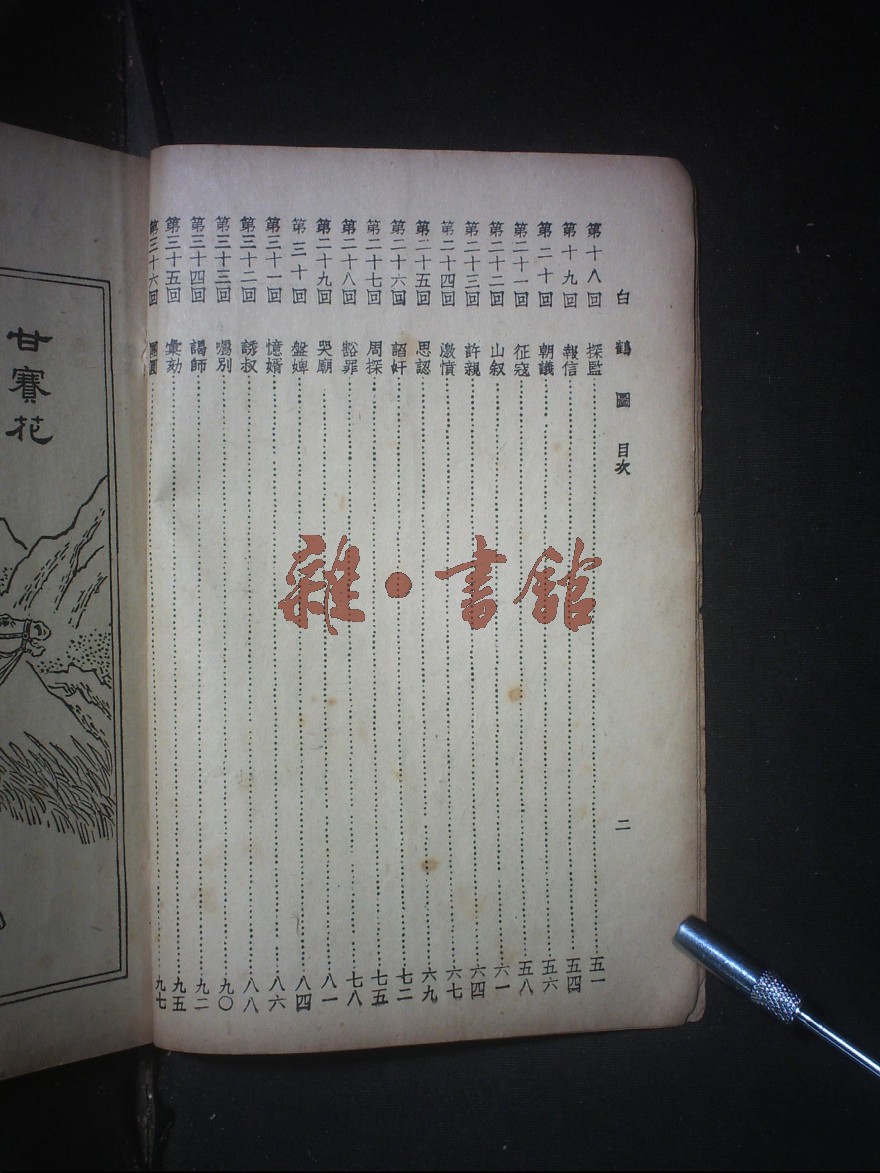 白鶴圖 目次 二
第十八回 探監 五一
第十九回 報信 五四
第二十回 朝議 五六
第二十一回 征寇 五八
第二十二回 山叙 六一
第二十三回 許親 六四
第二十四回 激憤 六七
第二十五回 思認 六九
第二十六回 詔奸 七二
第二十七回 周探 七五
第二十八回 豁罪 七八
第二十九回 哭廟 八一
第三十回 盤婢 八四
第三十一回 憶婿 八六
第三十二回 誘叔 八八
第三十三回 囑別 九〇
第三十四回 謁師 九二
第三十五回 彙劾 九五
第三十六回 團圓 九七
甘賽花
雜·書館